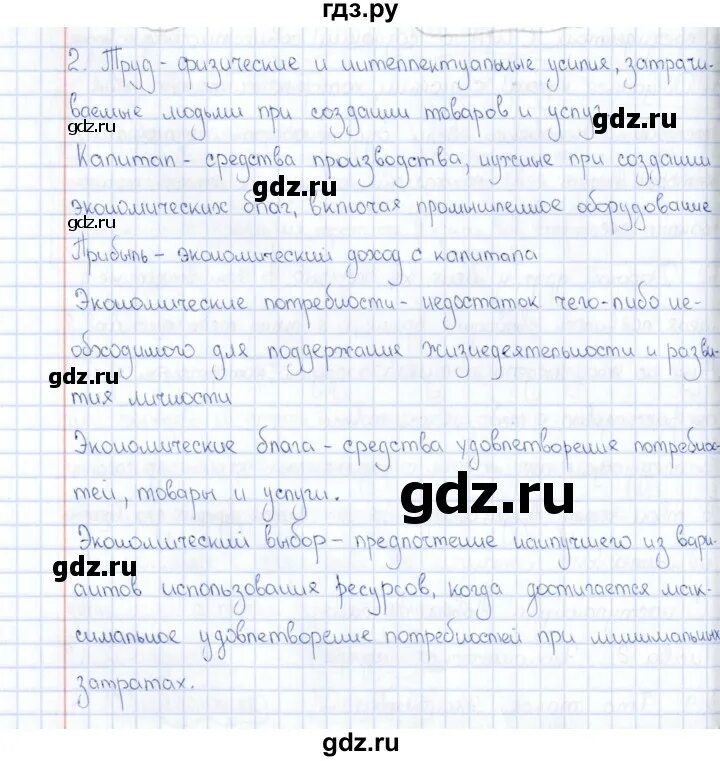 гдз.ру
2. Труд - физические и интеллектуальные усилия, затрачи-
ваемые людьми при создании товаров и услуг
gdz.ru
gdz.ru
Капитал - средства производства, нужные при создании
gdz.ru
экономических благ, включая промышленное оборудование
gdz.ru
Прибыль - экономический доход с капитала
Экономические потребности - недостаток чего-либо не-
обходимого для поддержания жизнедеятельности и разви-
gdz.ru
тия личности
Экономические блага - средства удовлетворения потребнос-
тей, товары и услуги.
gdz.ru
Экономический выбор - предпочтение наилучшего из вари-
gdz.ru
антов использования ресурсов, когда достигается мак-
симальное удовлетворение потребностей при минимальных
затратах.
gdz.ru